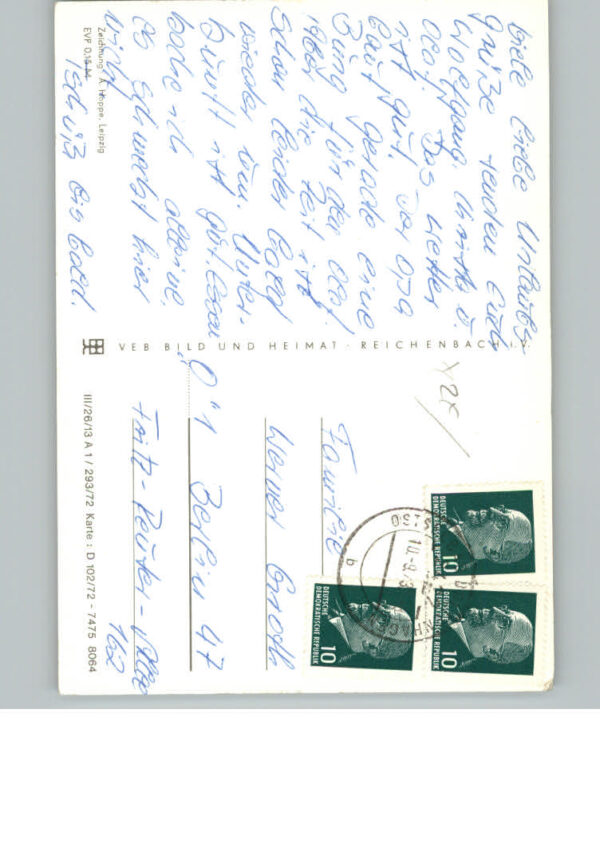 Viele liebe Urlaubs-
grüße senden Euch
Wolfgang, Christa u.
Olaf. Das Wetter
ist gut. Der Opa
baut gerade eine
für den Olaf.
Aber die Zeit ist
schon leider bald
wieder rum. Unter-
kunft ist gut. Essen
koche ich alleine,
es schmeckt hier
Tschüß bis bald.
Zeichnung: A. Hoppe, Leipzig
EVP 0,15 M
VEB BILD UND HEIMAT · REICHENBACH i. V.
III/26/13 A 1/293/72 Karte: D 102/72 - 7475 8064
Familie
Werner
1 Berlin 47
Fritz-Reuter-Allee
162
DEUTSCHE
DEMOKRATISCHE REPUBLIK
10
DEUTSCHE
DEMOKRATISCHE REPUBLIK
10
DEUTSCHE
DEMOKRATISCHE REPUBLIK
10